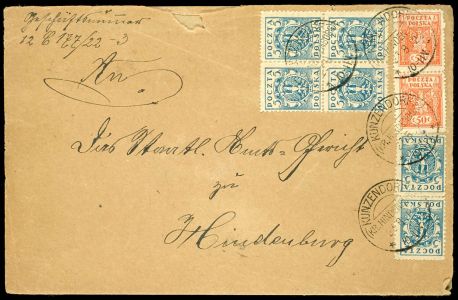 Geschäftsnummer
12 C 177/22 - 3
An
Das Staatl. Amts-Gericht
zu
Hindenburg
POCZTA POLSKA
POCZTA POLSKA
POCZTA POLSKA
POCZTA POLSKA
POCZTA POLSKA
POCZTA POLSKA 50
POCZTA POLSKA
POCZTA POLSKA
KUNZENDORF
KUNZENDORF
KUNZENDORF
(KR. HINDENB